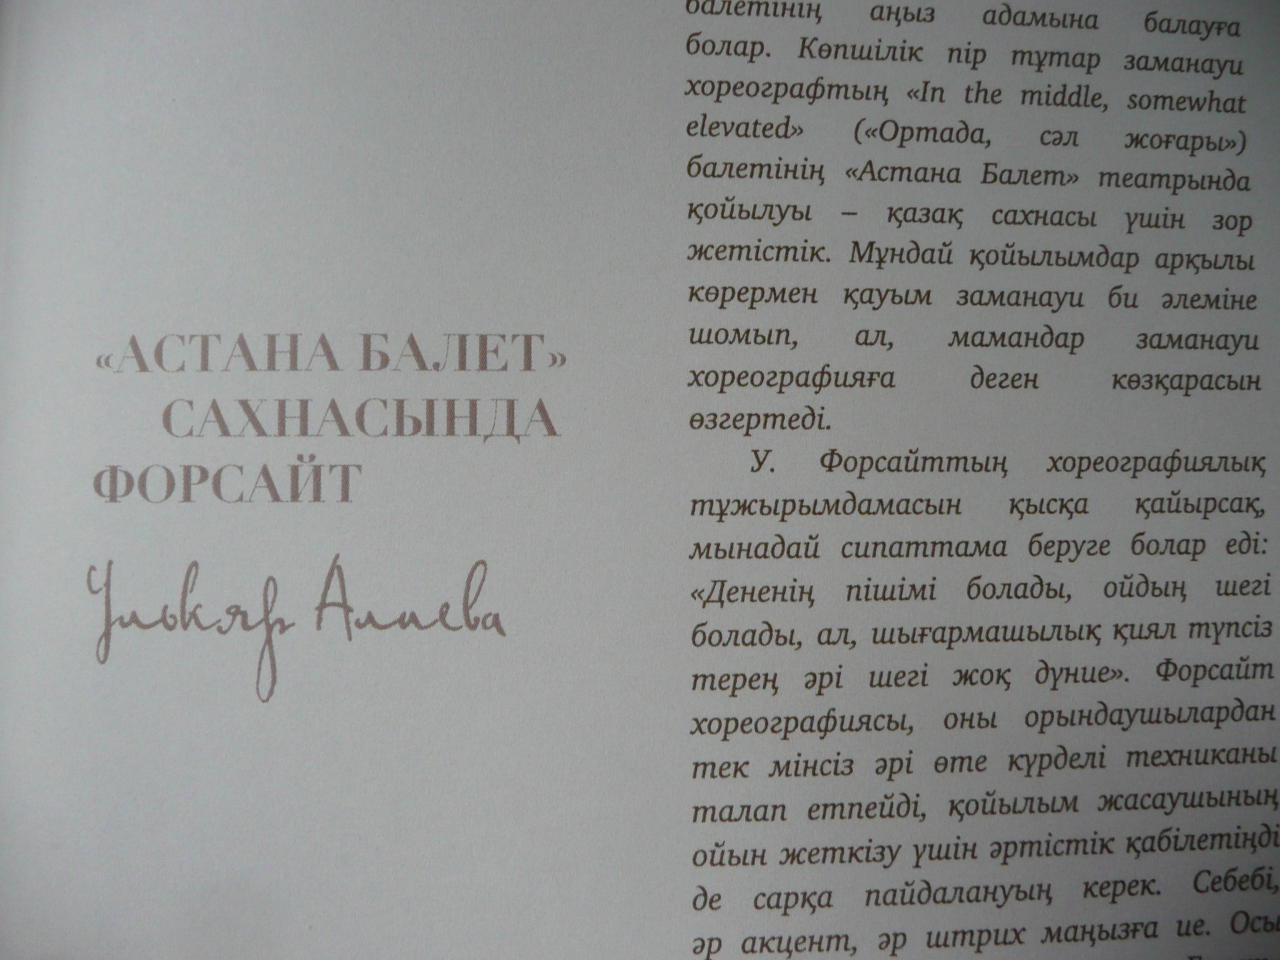 «АСТАНА БАЛЕТ»
САХНАСЫНДА
ФОРСАЙТ
Улькяр Алиева
балетінің аңыз адамына балауға
болар. Көпшілік пір тұтар заманауи
хореографтың «In the middle, somewhat
elevated» («Ортада, сәл жоғары»)
балетінің «Астана Балет» театрында
қойылуы – қазақ сахнасы үшін зор
жетістік. Мұндай қойылымдар арқылы
көрермен қауым заманауи би әлеміне
шомып, ал, мамандар заманауи
хореографияға деген көзқарасын
өзгертеді.
У. Форсайттың хореографиялық
тұжырымдамасын қысқа қайырсақ,
мынадай сипаттама беруге болар еді:
«Дененің пішімі болады, ойдың шегі
болады, ал, шығармашылық қиял түпсіз
терең әрі шегі жоқ дүние». Форсайт
хореографиясы, оны орындаушылардан
тек мінсіз әрі өте күрделі техниканы
талап етпейді, қойылым жасаушының
ойын жеткізу үшін әртістік қабілетіңді
де сарқа пайдалануың керек. Себебі,
әр акцент, әр штрих маңызға ие. Осы